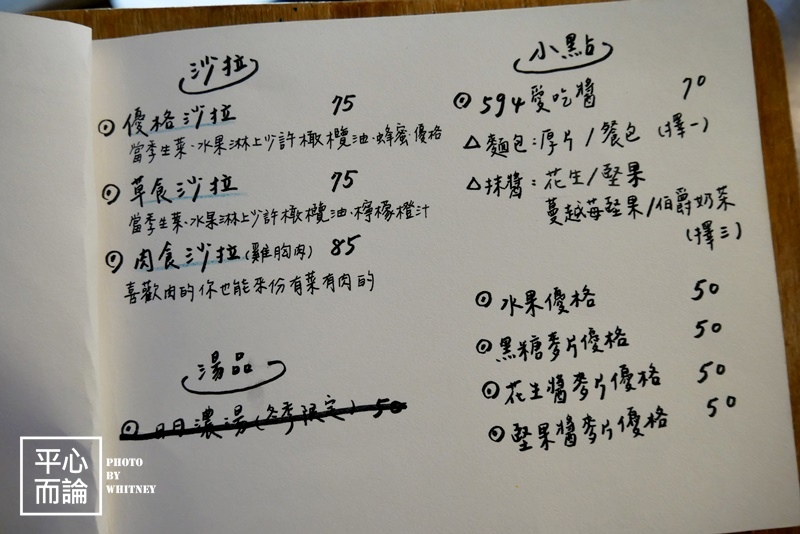 沙拉
優格沙拉 75
當季生菜、水果淋上少許橄欖油、蜂蜜、優格
草食沙拉 75
當季生菜、水果淋上少許橄欖油、檸檬橙汁
肉食沙拉(雞胸肉) 85
喜歡肉的你也能來份有菜有肉的
湯品
日日濃湯(冬季限定) 50
小點
594愛吃醬 70
△麵包:厚片/餐包 (擇一)
△抹醬:花生/堅果
蔓越莓堅果/伯爵奶茶
(擇三)
水果優格 50
黑糖麥片優格 50
花生醬麥片優格 50
堅果醬麥片優格 50
平心
而論
PHOTO
BY
WHITNEY